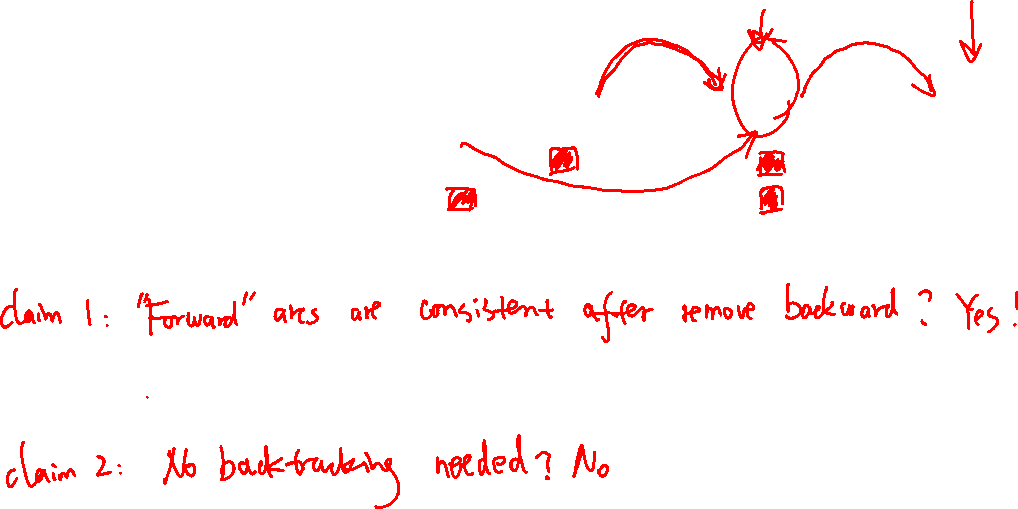 claim 1: "Forward" arcs are consistent after remove backward? Yes!
claim 2: No backtracking needed? No